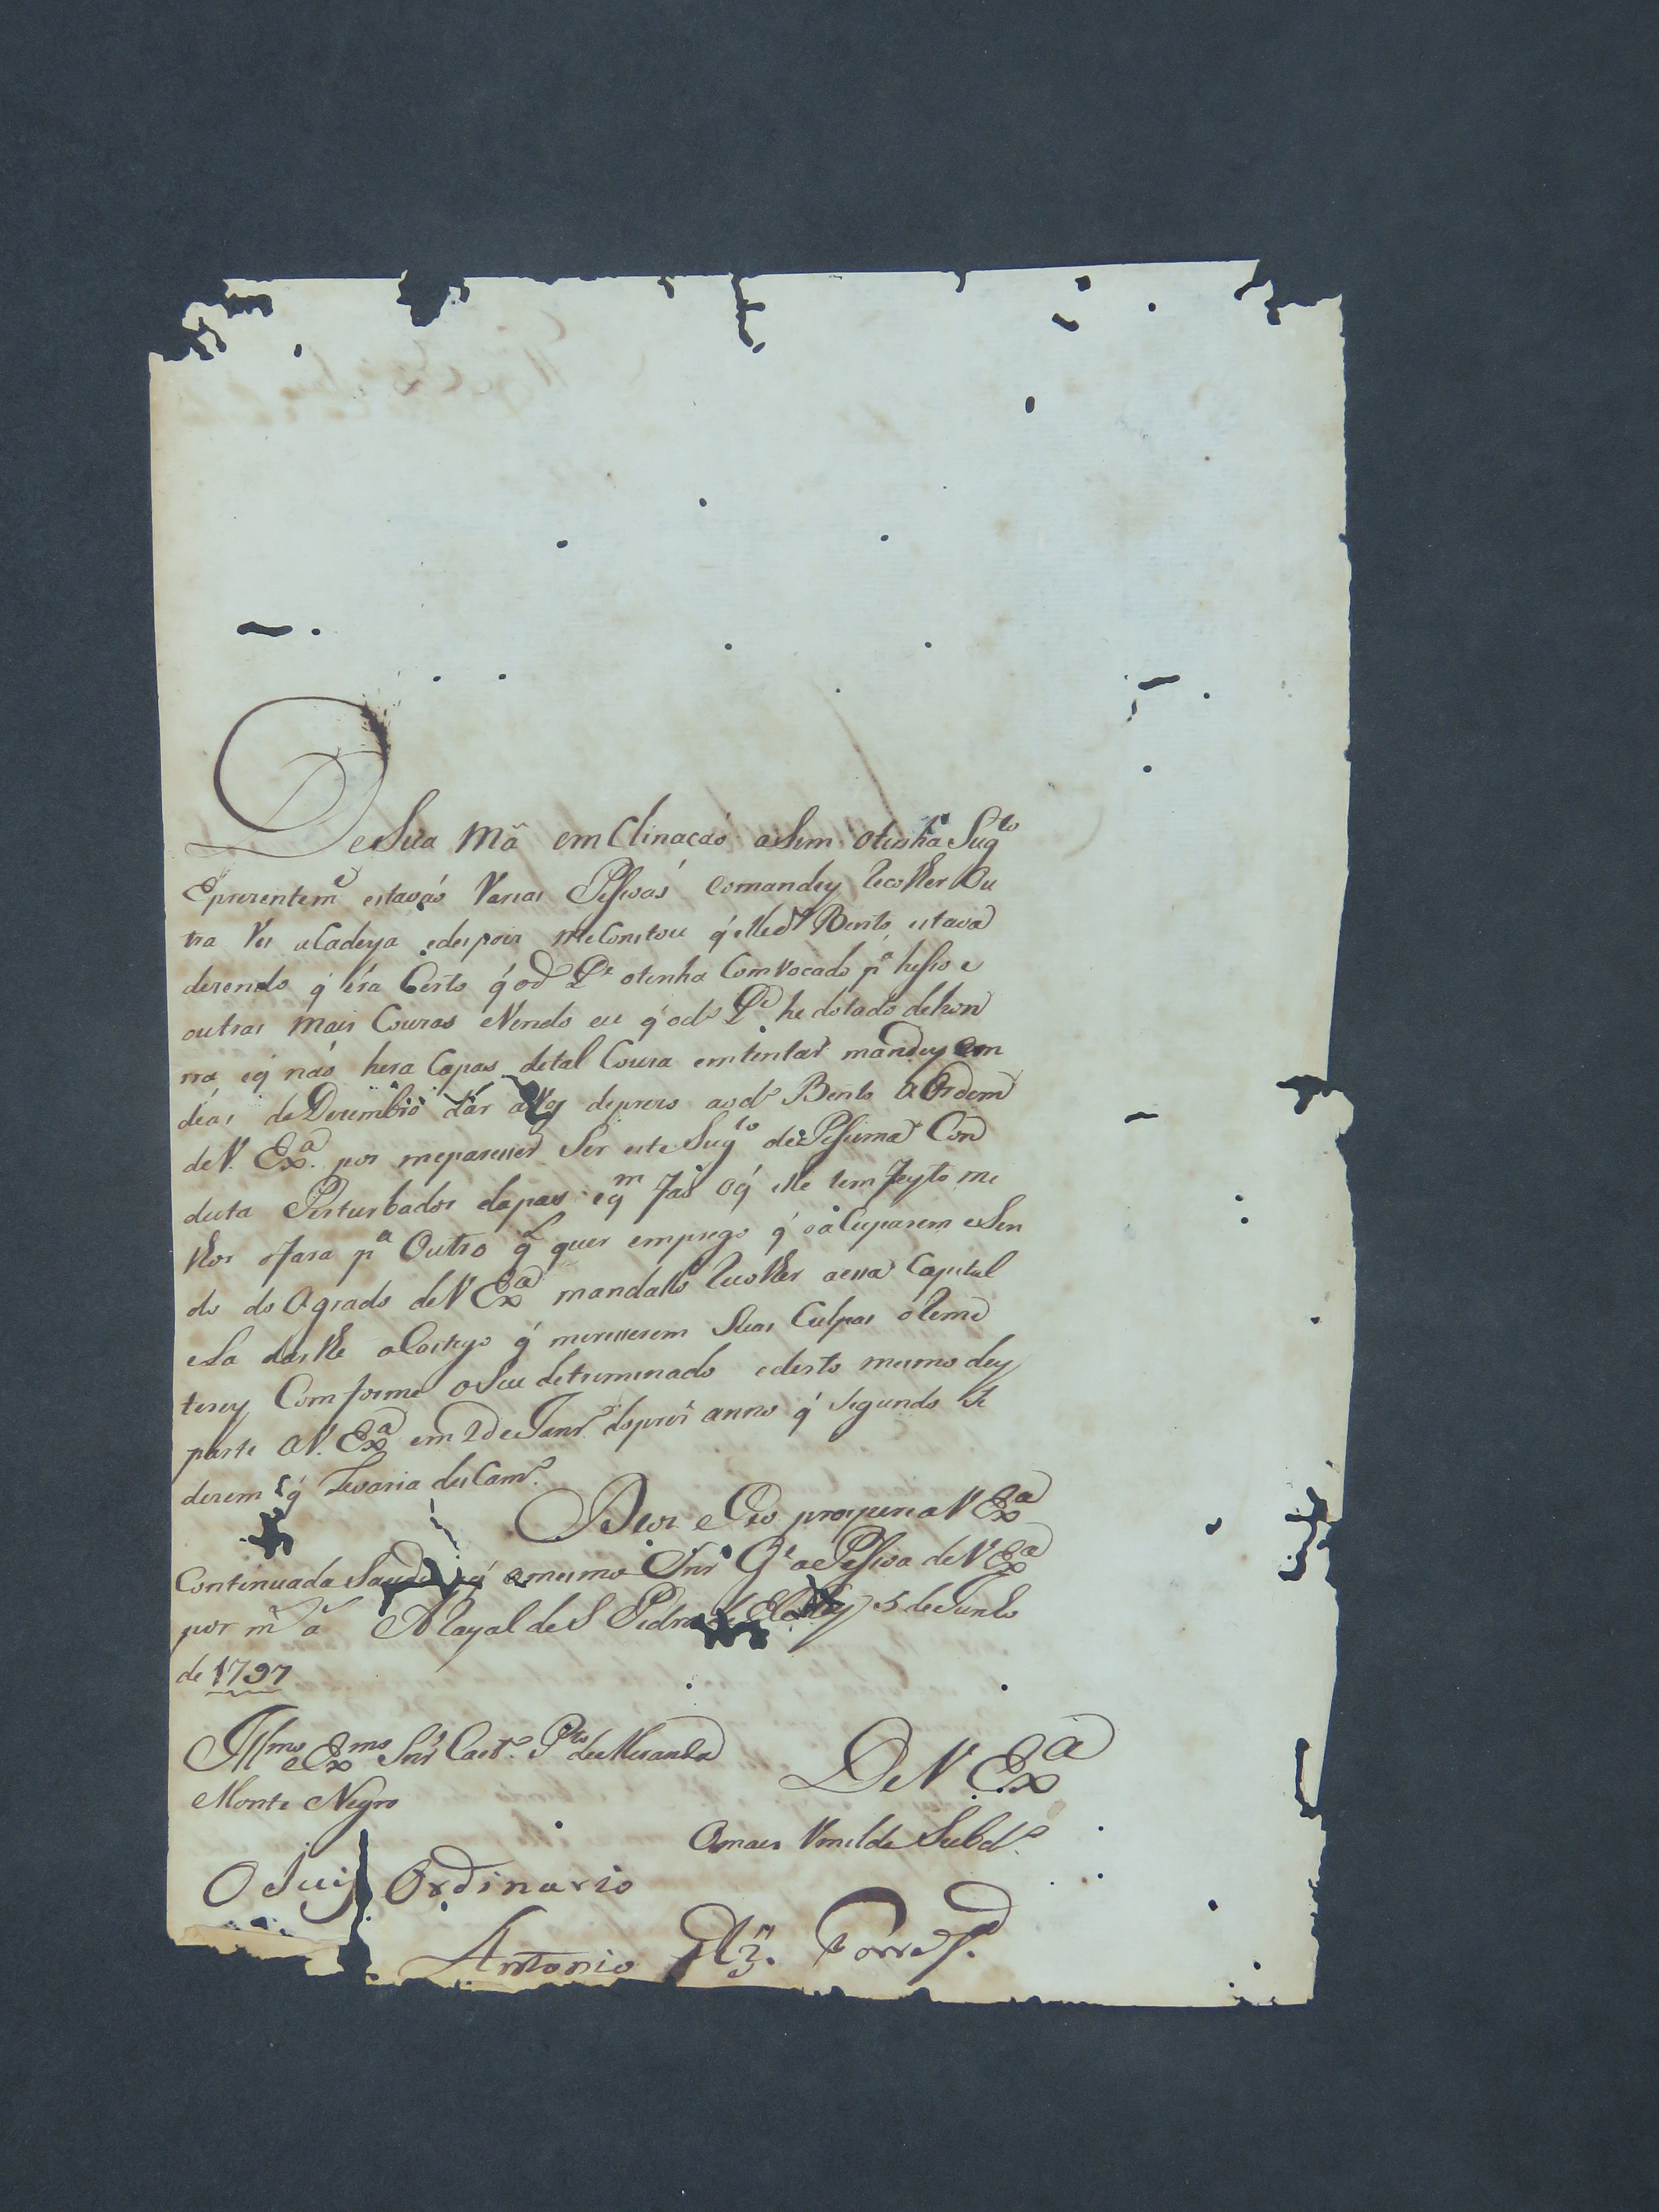 De Sua Mã em Clinacaó aSim otinha Sug.to
E prezentem.e estavaó Varias Pessoas comandey Recolher Ou
tra Ves a Cadeya edespois me Constou q́ elle d.o Bento estava
dezendo q́ éra Certo q́ od.o P.e otinha Comvocado p.a hesso e
outras mais Couzas eVendo eu q́ od.o P.e he dotado dehon
rra eq́ naó hera Capas detal Couza emtentar mandey em
deas de Dezembro dár a deprezo aod.o Bento a Ordem
de V. Ex.a por meparesser Ser este Sug.to de Pessima Con
duta Perturbador dapas eq.m Fas oq́ elle tem Feyto me
lhor oFara p.a Outro q.l quer emprego q́ oaCuparem eSen
do do Agrado de V Ex.a mandallo Recolher aessa Capital
eLa darlhe oCastigo q́ meresserem Suas Culpas oReme
terey Comforme oSeu detreminado edesto mesmo dey
parte a V. Ex.a em 2 de Janr.o dopres. anno q́ segundo Se
dezem q́ Levaria desCam.o
Deos e Ceo prospere a V Ex.a
Continuada Saude q́ omesmo Snr G.e aPessoa de V Ex.a
por m.s a.s ARayal de S Pedro de El Rey 5 de Junho
de 1797
Ill.mo e Ex.mo Snr Caet.o P.to de Miranda
Monte Negro
De V. Ex.a
Omais Vmilde Subd.o
O Juis Ordinario
Antonio Glz. Torres.